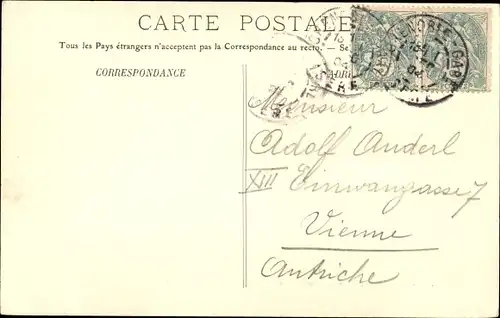 CARTE POSTALE
Tous les Pays étrangers n'acceptent pas la Correspondance au recto. Se
CORRESPONDANCE
GRENOBLE GARE
Monsieur
Adolf Anderl
XIII Einwangasse 7
Vienne
Autriche